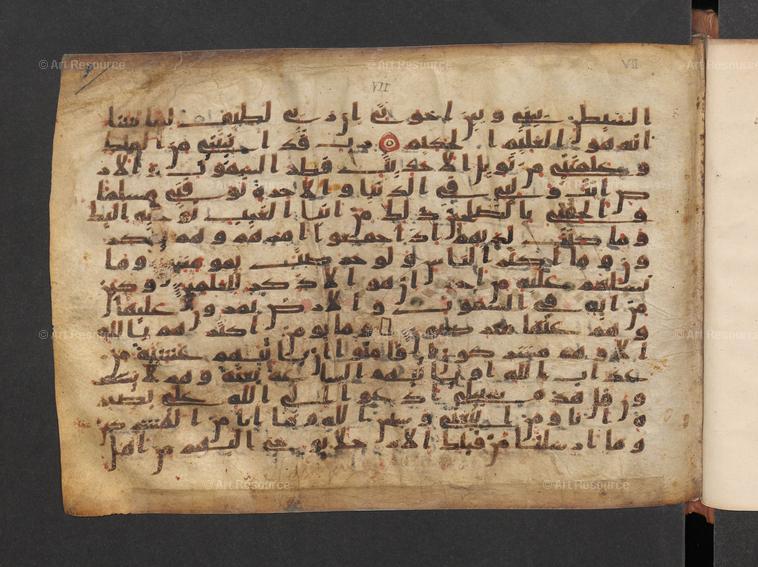 © Art Resource © Art Resource VII
VII
الشيطن بيني وبين اخوتي ان ربي لطيف لما يشا
انه هو العليم الحكيم رب قد اتيتني من الملك
وعلمتني من تويل الاحديث فطر السموت والار
ض انت وليي في الدنيا والاخرة توفني مسلما
والحقني بالصلحين ذلك من انبا الغيب نوحيه اليك
وما كنت لديهم اذ اجمعوا امرهم وهم يمكر
ون وما اكثر الناس ولو حرصت بمومنين وما
تسلهم عليه من اجر ان هو الا ذكر للعلمين وكاين
من اية في السموت والارض يمرون عليها
وهم عنها معرضون وما يومن اكثرهم بالله
الا وهم مشركون افامنوا ان تاتيهم غشية من
عذاب الله او تاتيهم الساعة بغتة وهم لا يشعر
ون قل هذه سبيلي ادعوا الى الله على بصير
ة انا ومن اتبعني وسبحن الله وما انا من المشركين
وما ارسلنا من قبلك الا رجلا يوحى اليهم من اهل
© Art Resource © Art Resource